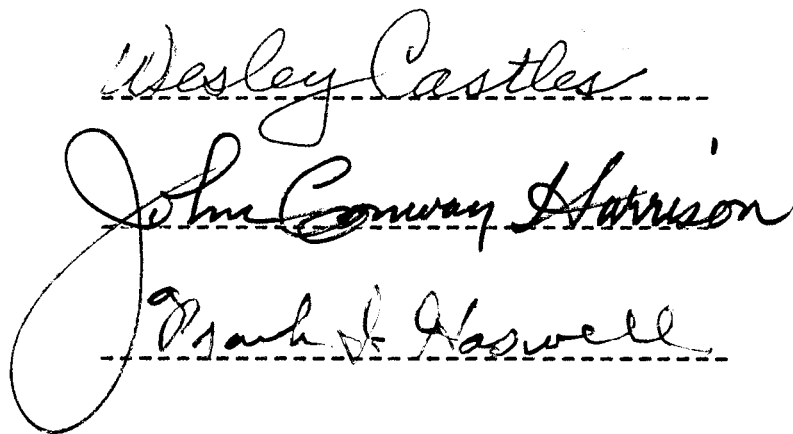 Wesley Castles
John Conway Harrison
Frank I. Haswell